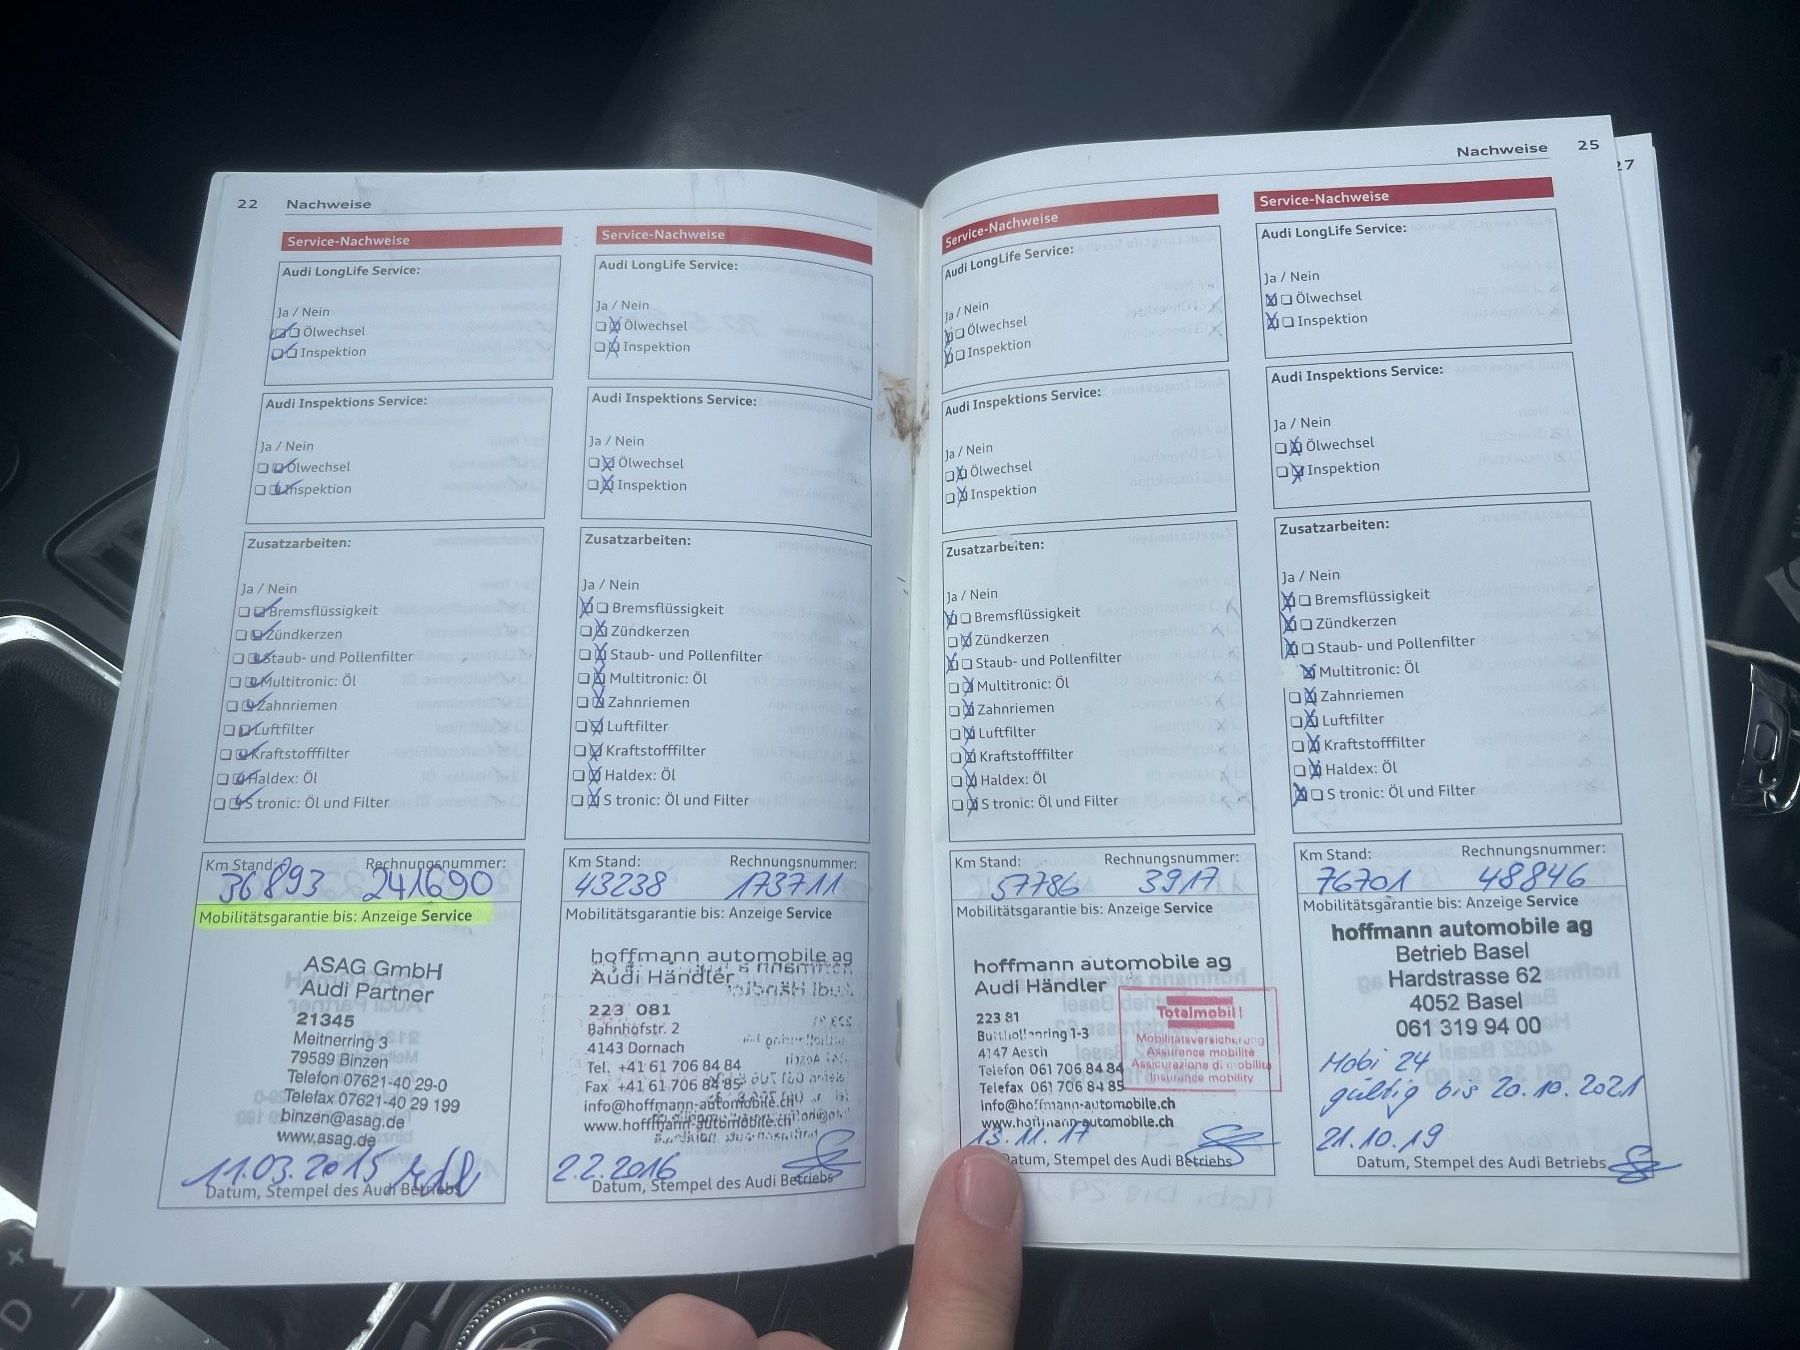 22 Nachweise
Service-Nachweise
Audi LongLife Service:
Ja / Nein
Ölwechsel
Inspektion
Audi Inspektions Service:
Ja / Nein
Ölwechsel
Inspektion
Zusatzarbeiten:
Ja / Nein
Bremsflüssigkeit
Zündkerzen
Staub- und Pollenfilter
Multitronic: Öl
Zahnriemen
Luftfilter
Kraftstofffilter
Haldex: Öl
S tronic: Öl und Filter
Km Stand: Rechnungsnummer:
36893 241690
Mobilitätsgarantie bis: Anzeige Service
ASAG GmbH
Audi Partner
21345
Meitnerring 3
79589 Binzen
Telefon 07621-40 29-0
Telefax 07621-40 29 199
binzen@asag.de
www.asag.de
11.03.2015
Datum, Stempel des Audi Betriebs
Service-Nachweise
Audi LongLife Service:
Ja / Nein
Ölwechsel
Inspektion
Audi Inspektions Service:
Ja / Nein
Ölwechsel
Inspektion
Zusatzarbeiten:
Ja / Nein
Bremsflüssigkeit
Zündkerzen
Staub- und Pollenfilter
Multitronic: Öl
Zahnriemen
Luftfilter
Kraftstofffilter
Haldex: Öl
S tronic: Öl und Filter
Km Stand: Rechnungsnummer:
43238 173711
Mobilitätsgarantie bis: Anzeige Service
hoffmann automobile ag
Audi Händler
223 081
Bahnhofstr. 2
4143 Dornach
Tel. +41 61 706 84 84
Fax +41 61 706 84 85
info@hoffmann-automobile.ch
www.hoffmann-automobile.ch
2.2.2016
Datum, Stempel des Audi Betriebs
Nachweise 25
27
Service-Nachweise
Audi LongLife Service:
Ja / Nein
Ölwechsel
Inspektion
Audi Inspektions Service:
Ja / Nein
Ölwechsel
Inspektion
Zusatzarbeiten:
Ja / Nein
Bremsflüssigkeit
Zündkerzen
Staub- und Pollenfilter
Multitronic: Öl
Zahnriemen
Luftfilter
Kraftstofffilter
Haldex: Öl
S tronic: Öl und Filter
Km Stand: Rechnungsnummer:
57786 3917
Mobilitätsgarantie bis: Anzeige Service
hoffmann automobile ag
Audi Händler
223 81
1-3
4147 Aesch
Telefon 061 706 84 84
Telefax 061 706 84 85
info@hoffmann-automobile.ch
www.hoffmann-automobile.ch
Totalmobil!
Mobilitätsversicherung
Assurance mobilité
Assicurazione di mobilità
Insurance mobility
13.11.17
Datum, Stempel des Audi Betriebs
Service-Nachweise
Audi LongLife Service:
Ja / Nein
Ölwechsel
Inspektion
Audi Inspektions Service:
Ja / Nein
Ölwechsel
Inspektion
Zusatzarbeiten:
Ja / Nein
Bremsflüssigkeit
Zündkerzen
Staub- und Pollenfilter
Multitronic: Öl
Zahnriemen
Luftfilter
Kraftstofffilter
Haldex: Öl
S tronic: Öl und Filter
Km Stand: Rechnungsnummer:
76701 48846
Mobilitätsgarantie bis: Anzeige Service
hoffmann automobile ag
Betrieb Basel
Hardstrasse 62
4052 Basel
061 319 94 00
Mobi 24
gültig bis 20.10.2021
21.10.19
Datum, Stempel des Audi Betriebs
D